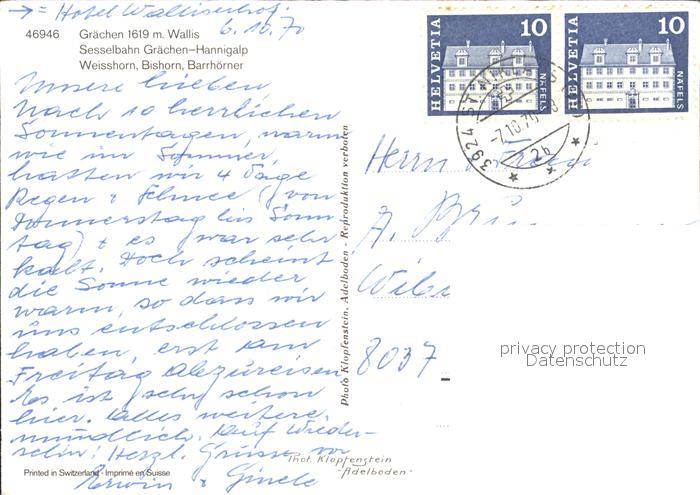 → = Hotel Walliserhof.
6.10.70
46946 Grächen 1619 m. Wallis
Sesselbahn Grächen–Hannigalp
Weisshorn, Bishorn, Barrhörner
Unsere lieben,
Nach 10 herrlichen
Sonnentagen, warm
wie im Sommer,
hatten wir 4 Tage
Regen & Schnee (von
Donnerstag bis Sonn
tag) & es war sehr
kalt. Doch scheint
die Sonne wieder
warm, so dass wir
uns entschlossen
haben, erst am
Freitag abzureisen
Es ist sehr schön
hier. Alles weitere
mündlich. Auf Wieder-
sehn! Herzl. Grüsse von
Erwin & Gisela
Printed in Switzerland - Imprimé en Suisse
Photo Klopfenstein, Adelboden - Reproduktion verboten
Phot. Klopfenstein
-Adelboden-
HELVETIA 10 NÄFELS
HELVETIA 10 NÄFELS
3924 ST. NIKLAUS
-7.10.70-8
2b
Herrn &
A.
8037
privacy protection
Datenschutz